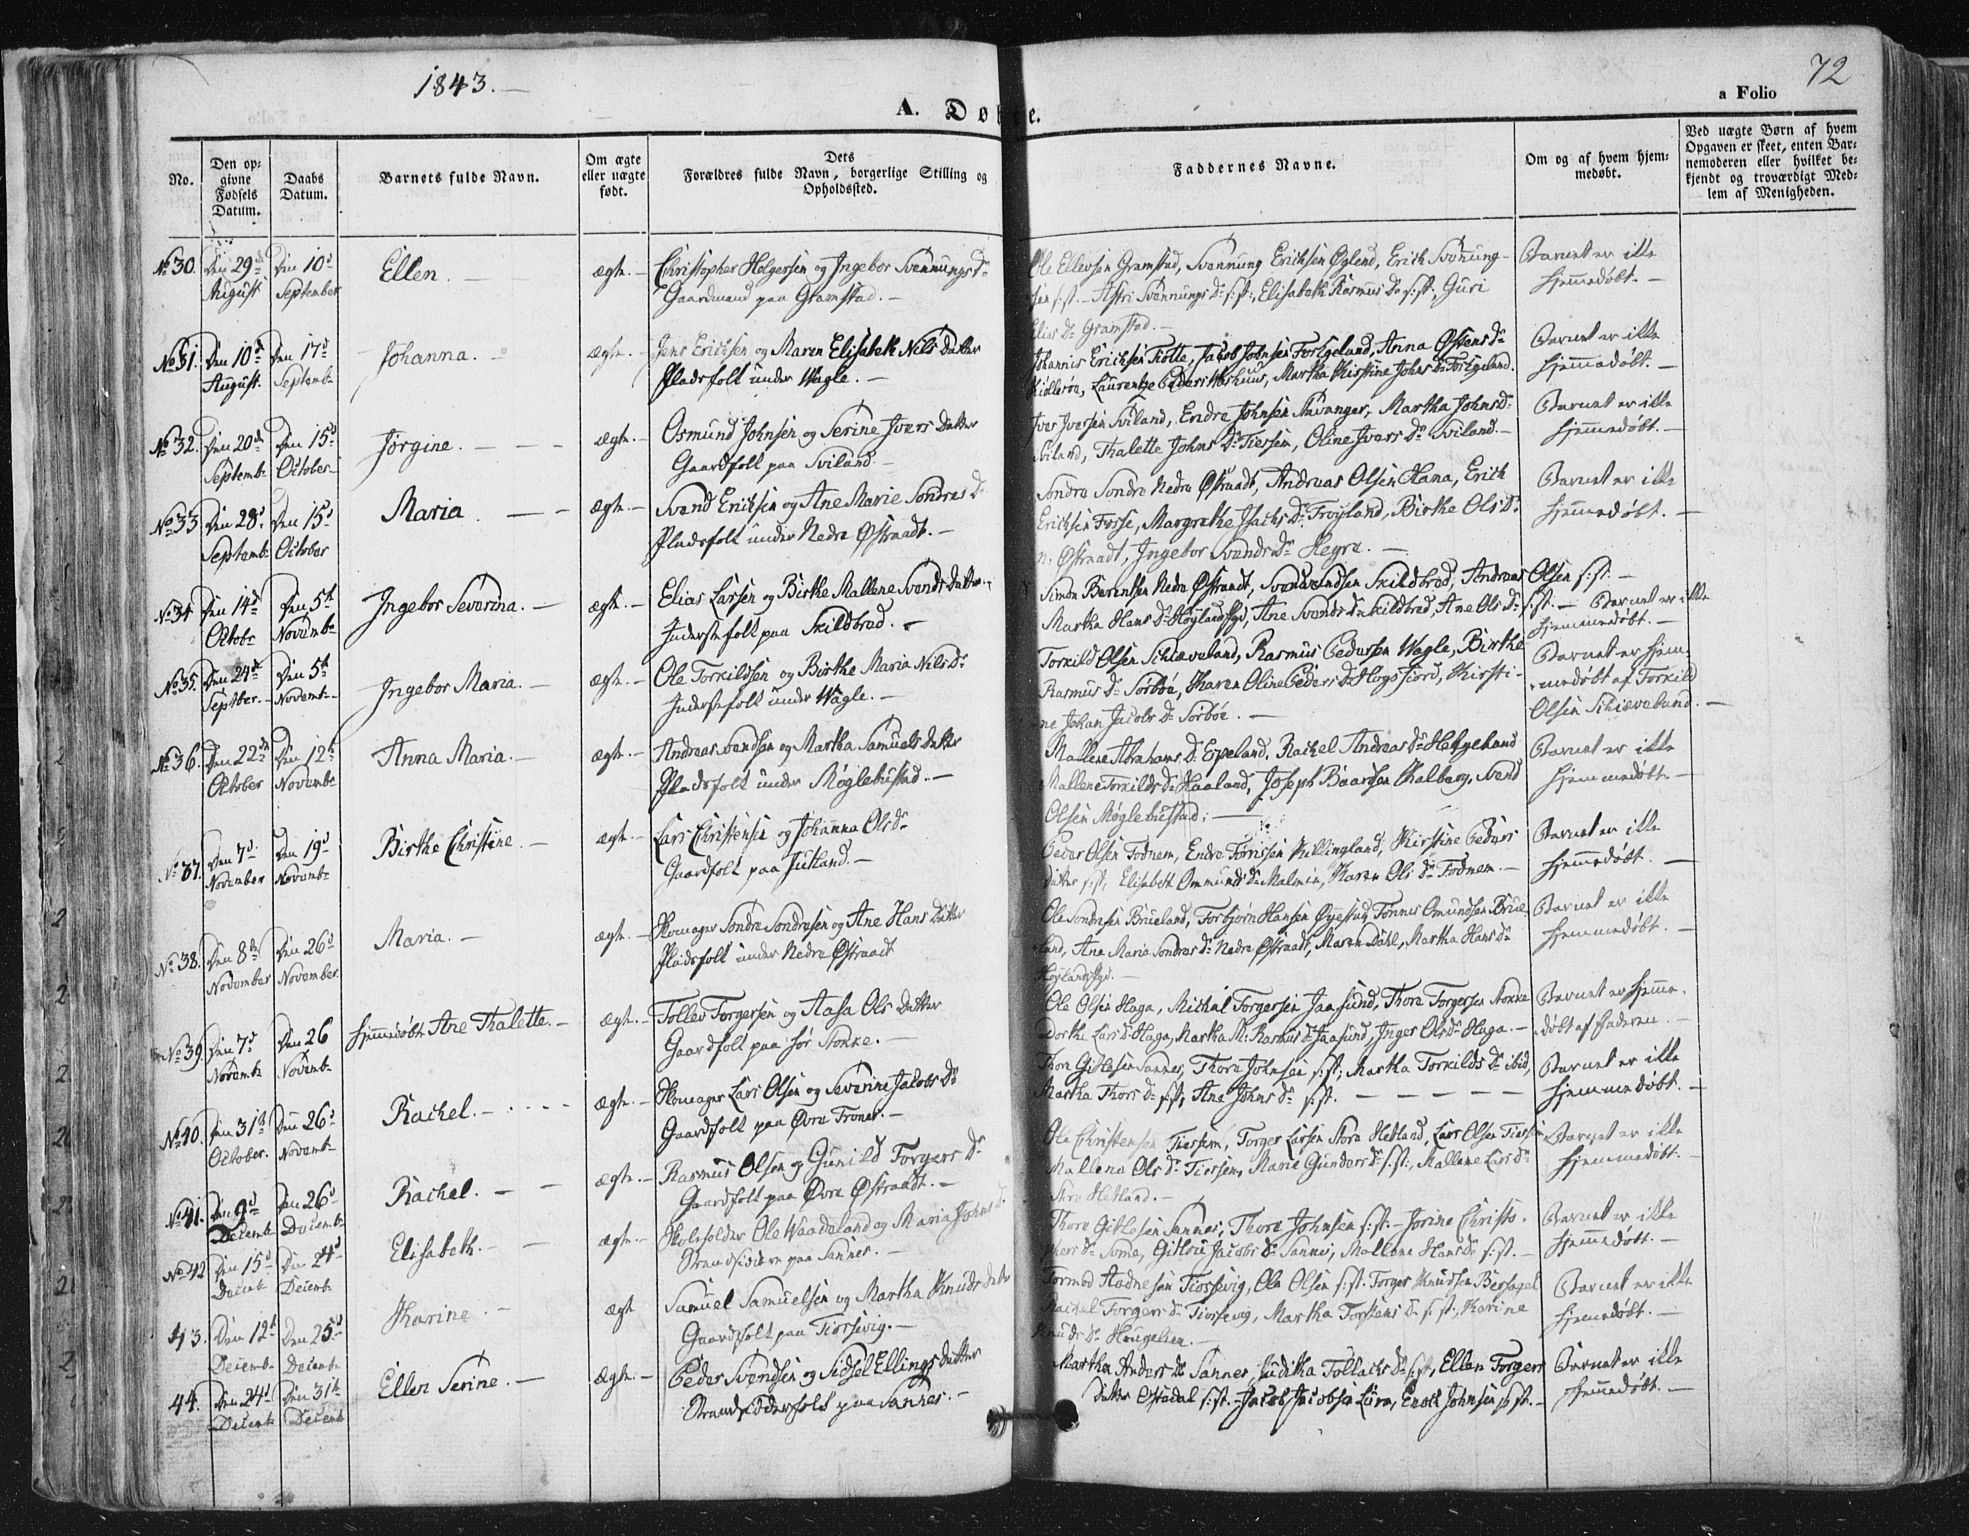 1843.
72
A. Døbte.
a Folio
No.
Den op-
givne
Fødsels
Datum.
Daabs
Datum.
Barnets fulde Navn.
Om ægte
eller uægte
født.
Dets
Forældres fulde Navn, borgerlige Stilling og
Opholdssted.
Faddernes Navne.
Om og af hvem hjem-
medøbt.
Ved uægte Børn af hvem
Opgaven er skeet, enten Bar-
nemoderen eller hvilket be-
kjendt og troværdigt Med-
lem af Menigheden.
No 30. Den 29de August Den 10d September Ellen ægte Christopher Holgersen og Ingebor Svennungs Dr
Gaardmand paa Gramstad.
Ole Ellevsen Gramstad, Svennung Erichsen Øglend, Erich Svenung-
sen s: st. Astri Svennungs Dr s: st:, Elisabeth Rasmus Dr s: st., Guri
Elias Dr Gramstad.
Barnet er ikke
hjemmedøbt.
No 31. Den 10d August. Den 17d Septembr Johanna. ægte. Jens Erichsen og Maren Elisabeth Nils Datter
Pladsfolk under Wagle.
Johannis Erichsen Totte, Jacob Johnsen Folgeland, Anna Østens Dr
Laurentze Martha Kirstine Johns Dr Folgeland.
Barnet er ikke
hjemmedøbt.
No 32. Den 20de Septembr Den 15d October Jørgine. ægte. Osmund Johnsen og Serine Ivers Datter
Gaardfolk paa Sviland
Iver Iversen Sviland, Endre Johnsen Stavanger, Martha Johns Dr
Sviland, Thalette Johns Dr Tiersen, Oline Ivers Dr Sviland.
Barnet er ikke
hjemmedøbt.
No 33 Den 28d Septembr Den 15d October Maria ægte. Svend Erichsen og Ane Marie Sondres Dr
Pladsfolk under Nedre Østraadt.
Sondre Sondre Nedre Østraadt, Andreas Olsen Hana, Erich
Erichsen Fosse, Margrethe Isachs Dr Frøyland, Birthe Ols Dr
n. Østraadt, Ingebor Svends Dr Hegre.
Barnet er ikke
hjemmedøbt.
No 34 Den 14d Octobr Den 5t Novembr Ingebor Severina. ægte. Elias Larsen og Birthe Mallene Svends Datter.
Inderstfolk paa Skildbred.
Simon Berentsen Nedre Østraadt, Svend Svendsen Skildbred, Andreas Olsen s: st.
Martha Hans Dr Høylandsgd, Ane Svends Dr Skildbred, Ane Ols Dr s: st. Barnet er ikke
hjemmedøbt.
No 35. Den 24d Septber. Den 5t Novembr. Ingebor Maria. ægte. Ole Torkildsen og Birthe Maria Nils Dr
Inderstfolk under Wagle.
Torkild Olsen Schieveland, Rasmus Pedersen Wagle, Birthe
Rasmus Dr Sørbøe, Karen Oline Peders Dr Høgsfiord, Kirsti-
ne Johan Jacobs Dr Sørbøe.
Barnet er hjem-
medøbt af Torkild
Olsen Schieveland.
No 36. Den 22de October Den 12t Novembr Anna Maria. ægte. Andreas Svendsen og Martha Samuels Datter
Pladsfolk under Møglebustad.
Mallene Abrahams Dr Epeland, Rachel Andreas Dr Helgeland
Mallene Torkilds Dr Haaland, Joseph Baardsen Kalberg, Svend
Olsen Møglebustad.
Barnet er ikke
hjemmedøbt
No 37. Den 7d November Den 19d Novembr Birthe Christine. ægte. Lars Christensen og Johanna Ols Dr
Gaardfolk paa Jutland.
Peder Olsen Fodnem, Endre Tørrissen Killingland, Kirstine Peders
datter s: st, Elisabeth Ommunds Dr Malmin, Karen Ols Dr Fodnem.
Barnet er ikke
hjemmedøbt.
No 38. Den 8de November Den 26d November. Maria. ægte. Skomager Sondre Sondresen og Ane Hans Datter
Pladsfolk under Nedre Østraadt
Ole Sondresen Brueland, Torbjørn Hansen Øyestad, Tønnes Omundsen Brue-
land, Ane Maria Sondres Dr Nedre Østraadt, Maren Dahl, Martha Hans Dr
Høylandsgd.
Barnet er ikke
hjemmedøbt.
No 39. Den 7d Novembr Den 26 Novembr Hjemmedøbt Ane Thalette. ægte. Tollev Torgersen og Aasa Ols Datter
Gaardfolk paa Sør Stokke.
Ole Olsen Haga, Michal Torgersen Jaasund, Thore Torgersen Stokke
Dorthe Lars Dr Haga, Martha M: Rasmus Dr Jaasund, Inger Ols Dr Haga.
Barnet er hjemme-
døbt af Faderen.
No 40. Den 31te October. Den 26d Novembr Rachel. ægte. Skomager Lars Olsen og Severine Jacobs Dr
Gaardfolk paa Øvre Trones.
Thore Gitlesen Sannes, Thore Johnsen s: st:, Martha Torkilds Dr ibid,
Martha Thors Dr s: st, Ane Johns Dr s: st.
Barnet er ikke
hjemmedøbt.
No 41. Den 9d Decembr Den 26d Decembr Rachel. ægte. Rasmus Olsen og Gunild Torgers Dr
Gaardfolk paa Øvre Østraadt.
Ole Christensen Tiersem, Torger Larsen Store Hetland, Lars Olsen Tiersem
Mallene Ols Dr Tiersem, Marie Gunders Dr s: st:, Mallene Lars Dr
Store Hetland.
Barnet er ikke
hjemmedøbt.
No 42 Den 15d Decembr Den 24d Decembr Elisabeth. ægte. Skoleholder Ole Waadeland og Maria Johns D.
Strandsiddere paa Sannes.
Thore Gitlesen Sannes, Thore Johnsen s: st. Jorine Christo-
phers Dr Somme, Jacobs Dr Sannes, Mallene Hans Dr s: st.
Barnet er ikke
hjemmedøbt.
43. Den 12t Decembr Den 25d Decembr Karine ægte Samuel Samuelsen og Martha Knuds datter
Gaardfolk paa Tiorsevig.
Tormod Aadnesen Tiorsevig, Ole Olsen s: st. Torger Knudsen Bersagel
Rachel Torgers Dr Tiorsevig, Martha Torstens Dr s: st, Karine
Knuds Dr Hougelien.
Barnet er ikke
hjemmedøbt.
44. Den 24d Decembr Den 31te Decembr Ellen Serine. ægte. Peder Svendsen og Sidsel Ellings datter
Strandsidderfolk paa Sannes.
Martha Anders Dr Sannes, Juditha Tollachs Dr s: st, Ellen Torgers
datter s: st. Jacob Jacobsen Lura, Enok Johnsen s: st.
Barnet er ikke
hjemmedøbt.